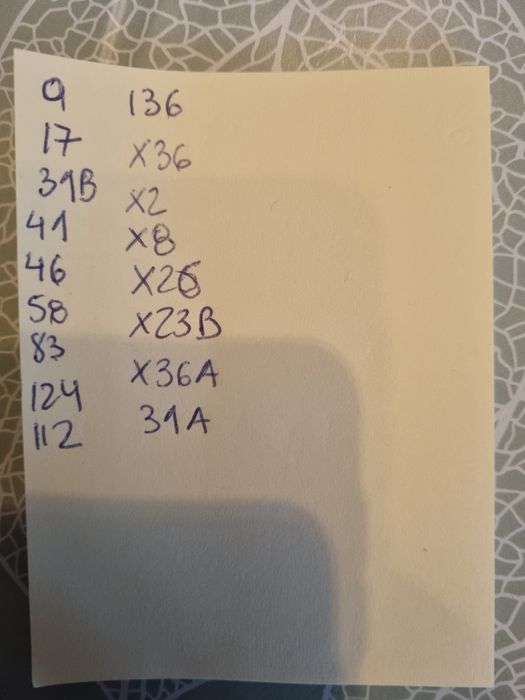 9
17
31B
41
46
58
83
124
112
136
X36
X2
X8
X26
X23B
X36A
31A